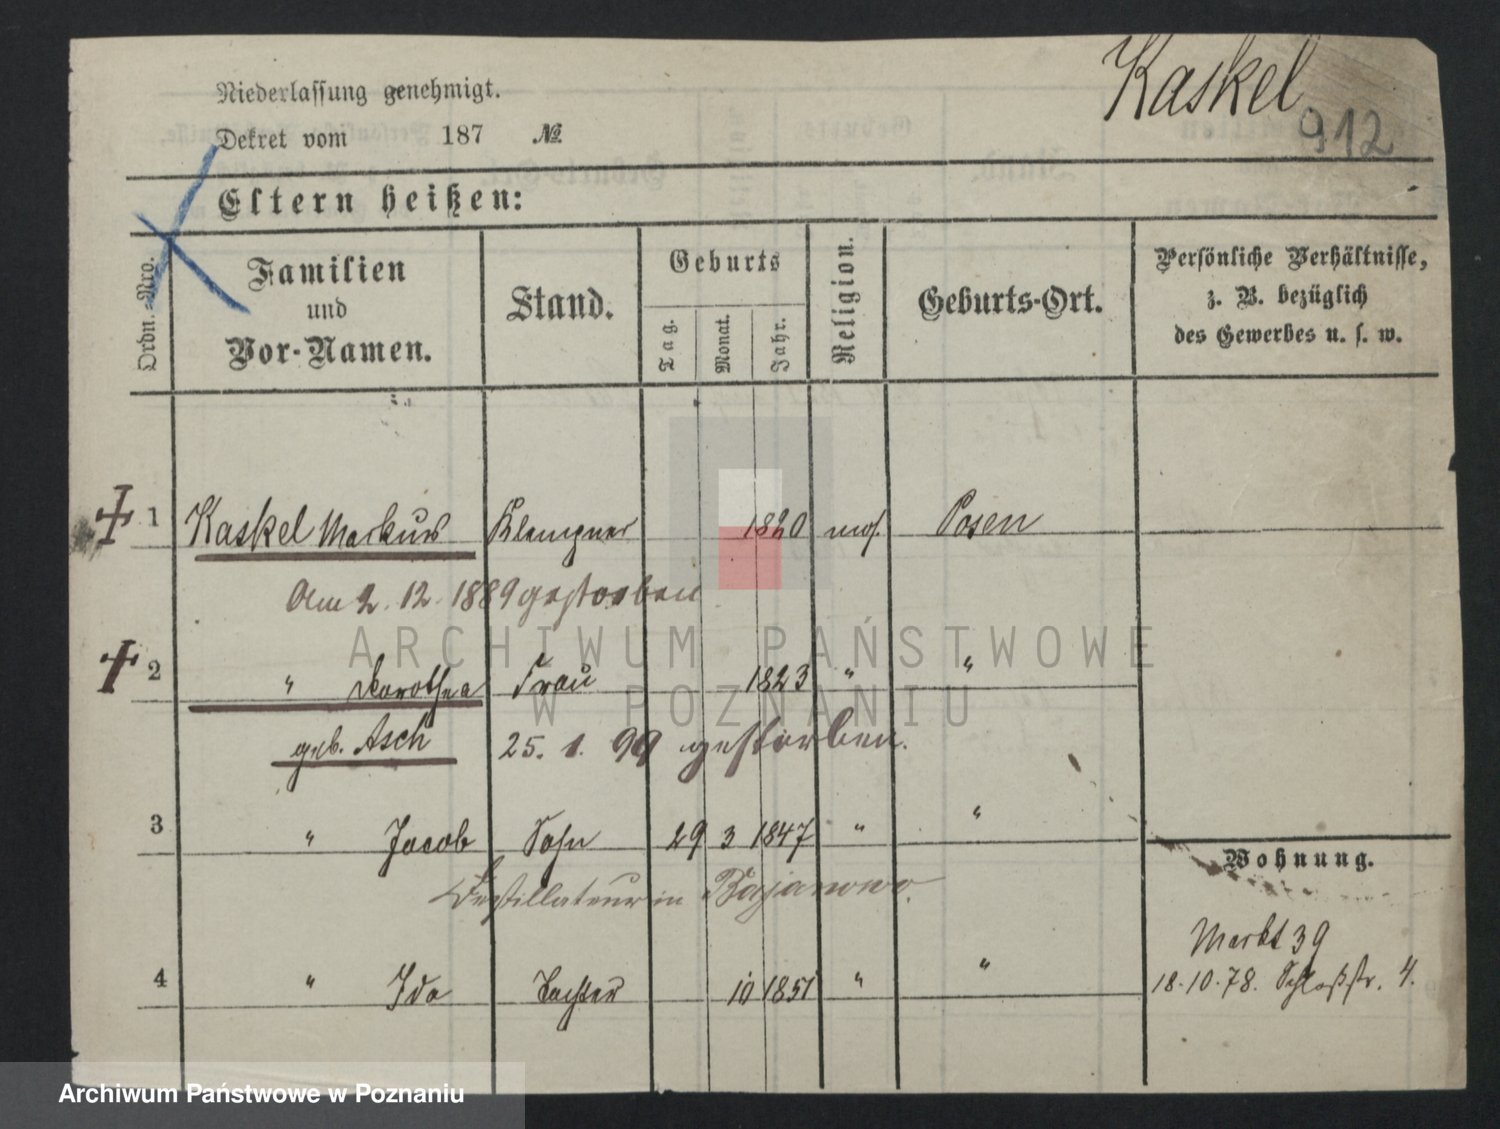 Kaskel
912
Niederlassung genehmigt.
Dekret vom 187 №
Eltern heißen:
Ordn.-Nro.
Familien und Vor-Namen.
Stand.
Geburts
Tag.
Monat.
Jahr.
Religion.
Geburts-Ort.
Persönliche Verhältnisse,
z. B. bezüglich
des Gewerbes u. s. w.
1 Kaskel Markus Klempner 1820 mos. Posen
Am 2. 12. 1889 gestorben
ARCHIWUM PAŃSTWOWE
2 " Dorothea Frau 1823 " "
W POZNANIU
geb. Asch 25. 1. 99 gestorben.
3 " Jacob Sohn 29 3 1847 " "
Wohnung.
Destillateur in Bojanowo.
Markt 39
4 " Ida Tochter 10 1851 " "
18.10.78. Schloßstr. 4.
Archiwum Państwowe w Poznaniu